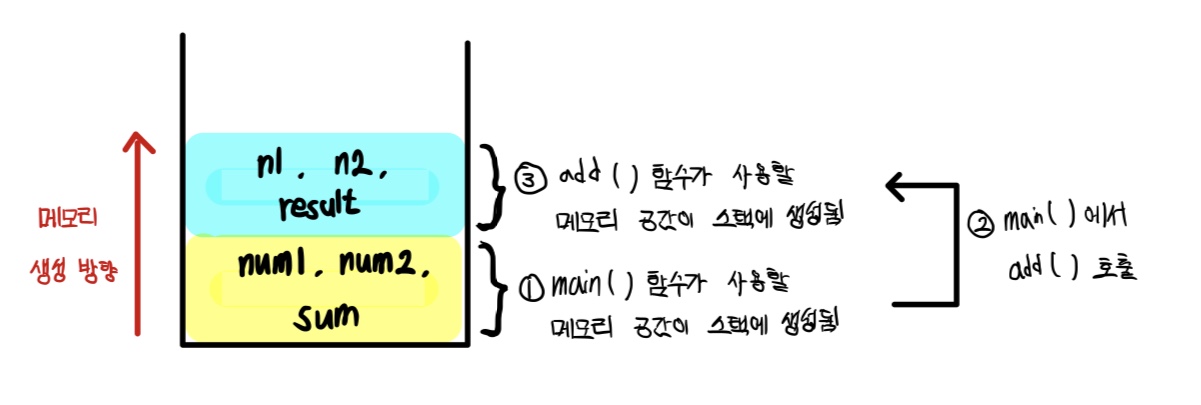 메모리
생성 방향
n1, n2,
result
num1, num2,
sum
③ add ( ) 함수가 사용할
메모리 공간이 스택에 생성됨
① main ( ) 함수가 사용할
메모리 공간이 스택에 생성됨
② main ( ) 에서
add ( ) 호출